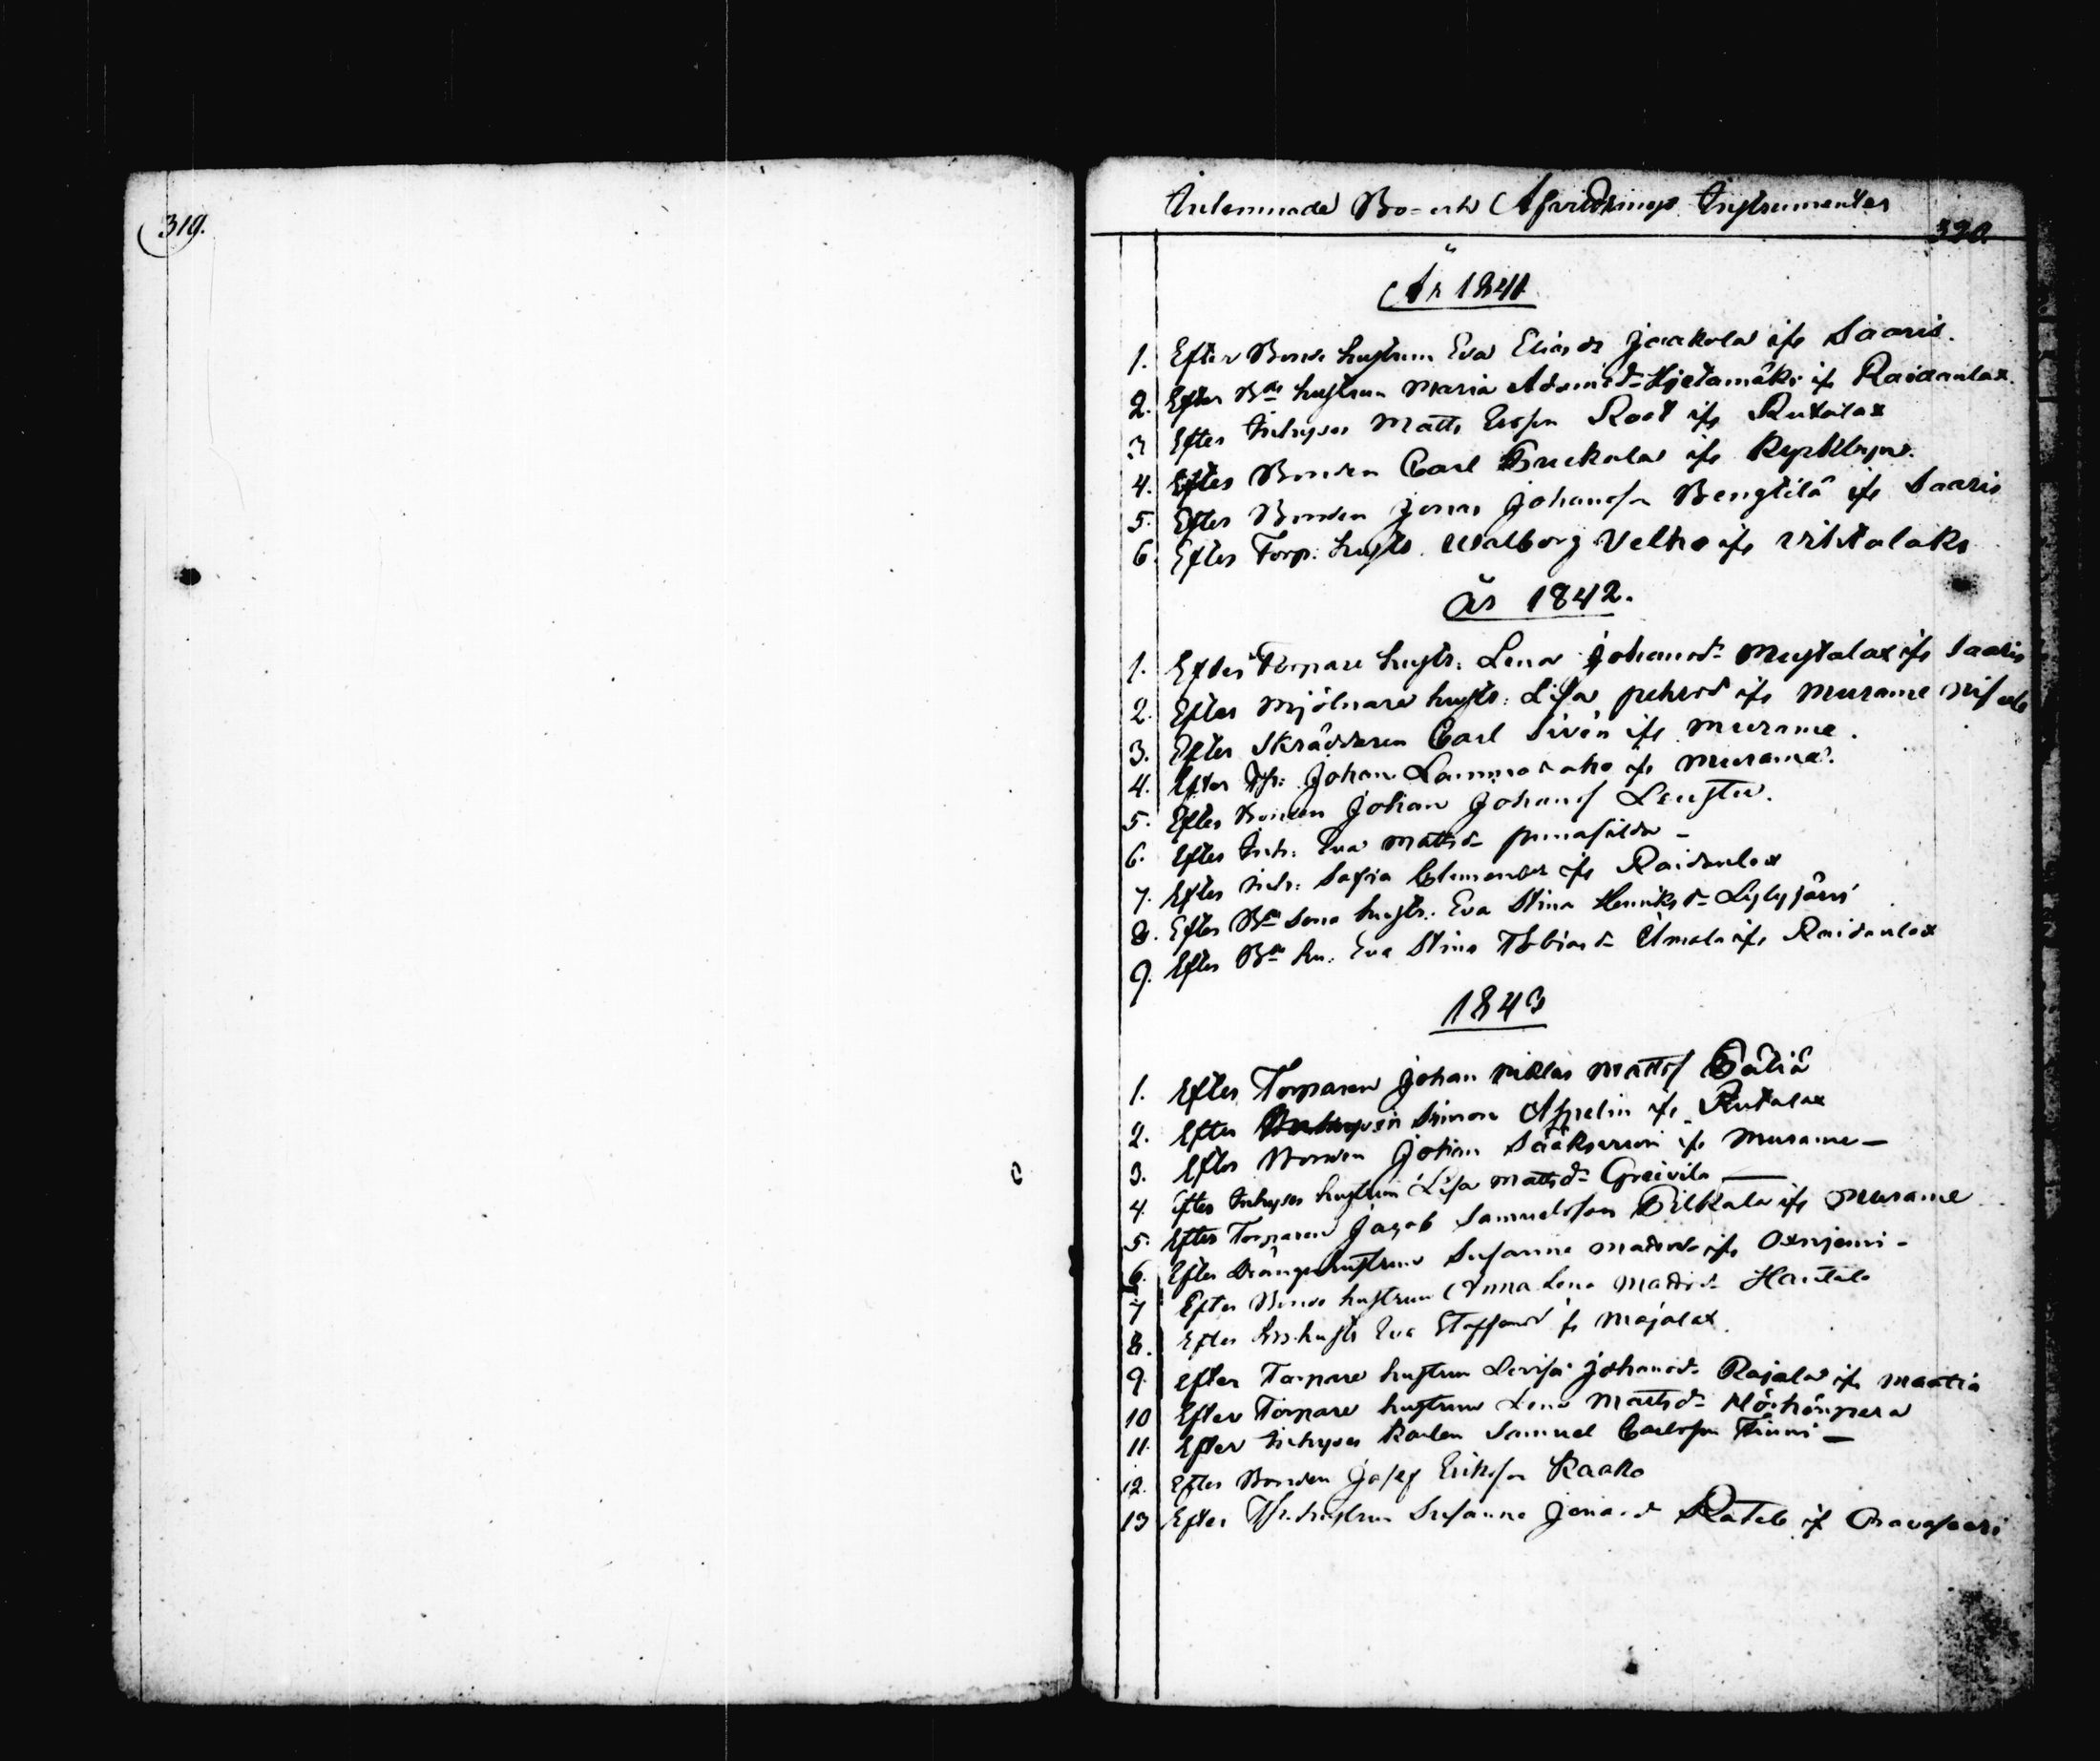 319.
Inlemnade Bo- och Afvittrings Instrumenter
320.
År 1841
1. Efter Bonde hustrun Eva Eliasdr Jaakola ifr Saaris.
2. Efter Bde hustrun Maria Adamsdr Hjetamäki ifr Raidanlax.
3 Efter Inhyses Matts Ersson Root ifr Rutalax
4. Efter Bonden Carl ifr
5. Efter Bonden Jonas Johansson Bengtilä ifr Saaris
6. Efter Torp: hustr. Walborg Velho ifr
År 1842.
1. Efter Torpare hustr: Lena Johansdr Mustalax ifr Saaris
2. Efter Mjölnare hustr: Lisa Pehrsd ifr Murame
3. Efter Skräddaren Carl Sivén ifr Murame.
4. Efter Johan ifr Murame.
5. Efter Bonden Johan Johans Leustu.
6. Efter Inh: Eva Mattsdr
7. Efter Inh: Sofia Clemensdr ifr Raidanlax
8. Efter Bde Sone hustr. Eva Stina Henriksdr Lylyjärvi
9. Efter Bde hu. Eva Stina Tobiasdr ifr Raidanlax
1843
1. Efter Torparen Johan Niklas Matts
2. Efter Simon Appelin ifr Rutalax
3. Efter Bonden Johan Sääksvuori ifr Murame –
4. Efter Inhyses hustrun Lisa Mattsdr Greivila —
5. Efter Torparen Jacob Samuelsson ifr Murame
6. Efter Drängehustrun Susanna ifr Oxnjemi -
7 Efter Bonde hustrun Anna Lena Mattsdr Hautala
8. Efter hustr Eva Staffansd fr Majalax.
9. Efter Torpare hustrun Lovisa Johansdr Rajala ifr Maatia
10 Efter Torpare hustrun Lena Mattsdr
11. Efter Inhyses Karlen Samuel Carlsson Finni —
12. Efter Bonden Josef Eriksson Kaako
13 Efter hustrun Susanna Jonasd Ratala ifr Oravasaari